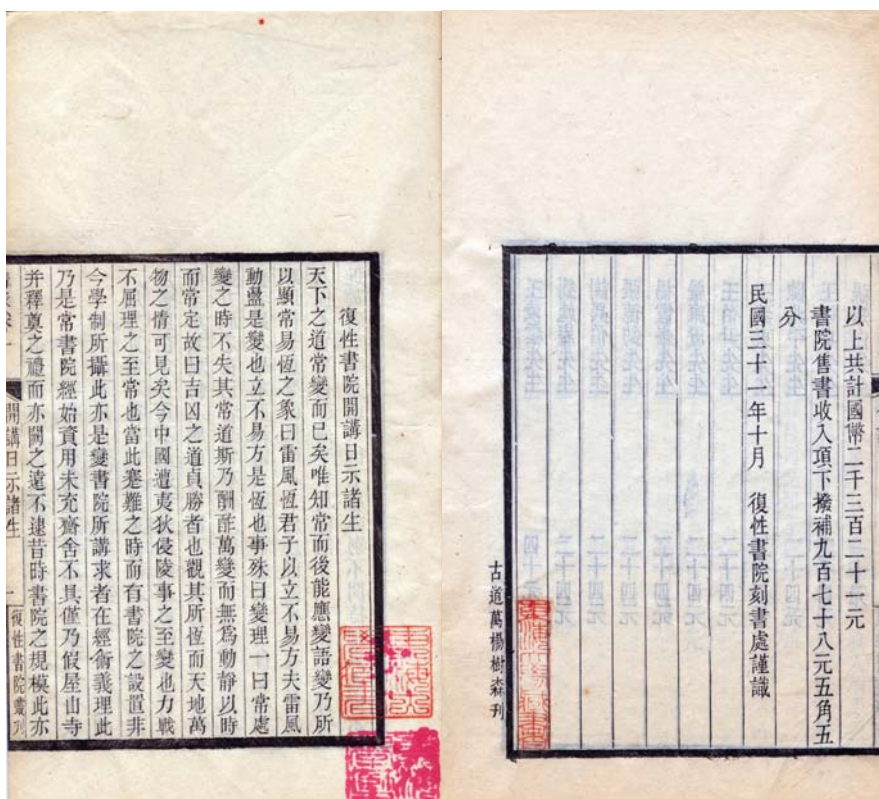 以上共計國幣二千三百二十一元
書院售書收入項下撥補九百七十八元五角五
分
民國三十一年十月　復性書院刻書處謹識
古道萬楊樹森刊
復性書院開講日示諸生
天下之道常變而已矣唯知常而後能應變語變乃所
以顯常易恆之象曰雷風恆君子以立不易方夫雷風
動盪是變也立不易方是恆也事殊曰變理一曰常處
變之時不失其常道斯乃酬酢萬變而無爲動靜以時
而常定故曰吉凶之道貞勝者也觀其所恆而天地萬
物之情可見矣今中國遭夷狄侵陵事之至變也力戰
不屈理之至常也當此蹇難之時而有書院之設置非
今學制所攝此亦是變書院所講求者在經術義理此
乃是常書院經始資用未充齋舍不具僅乃假屋山寺
并釋奠之禮而亦闕之遠不逮昔時書院之規模此亦
開講日示諸生　一　復性書院叢刊